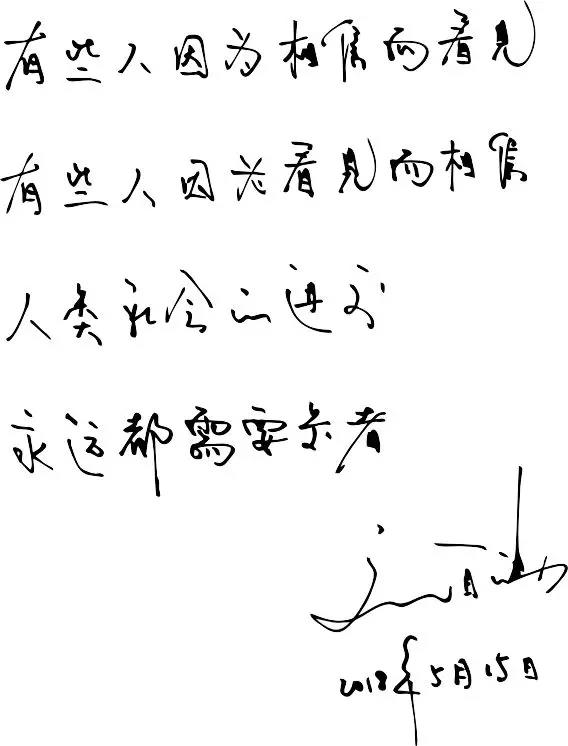 有些人因为相信而看見
有些人因为看見而相信
人类社会的进步
永远都需要前者
2018年5月15日